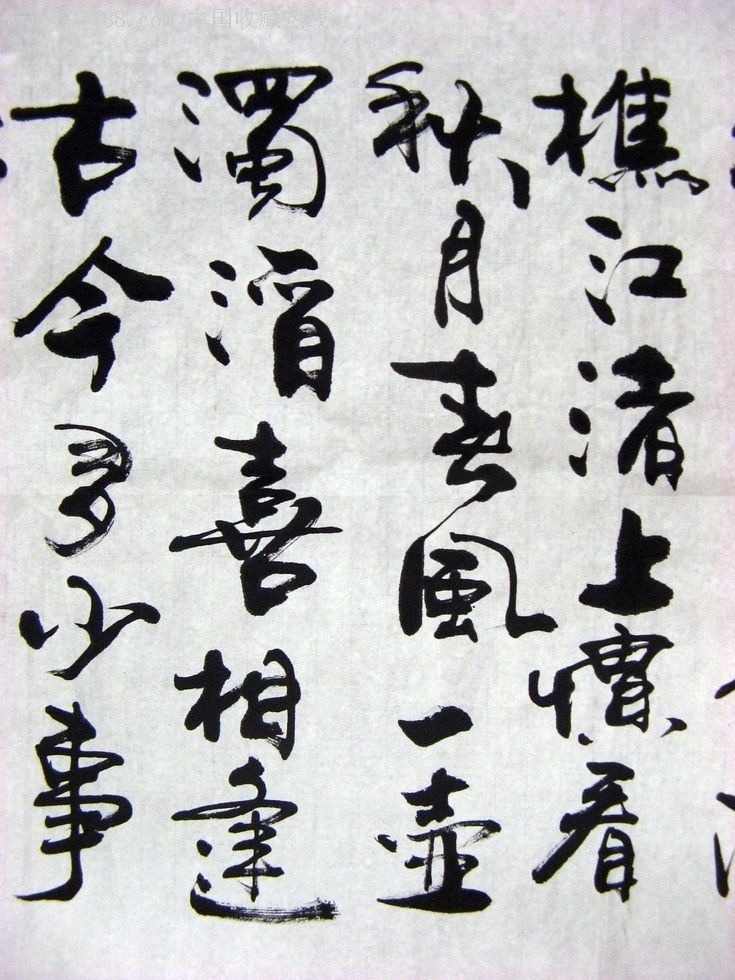 88.com 中国收藏热线
樵江渚上慣看
秋月春風一壺
濁酒喜相逢
古今多少事